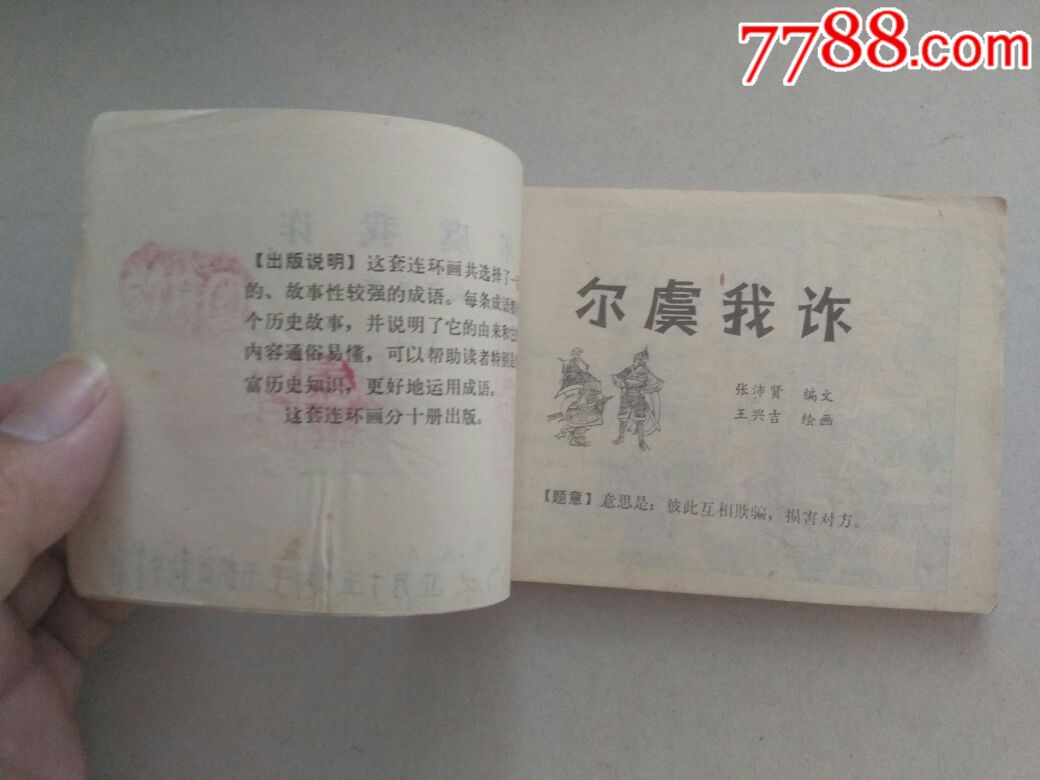 7788.com
【出版说明】这套连环画共选择了一
的、故事性较强的成语。每条成语
个历史故事，并说明了它的由来和它
内容通俗易懂，可以帮助读者特别是
富历史知识，更好地运用成语。
这套连环画分十册出版。
尔虞我诈
张沛贤 编文
王兴吉 绘画
【题意】意思是：彼此互相欺骗，损害对方。